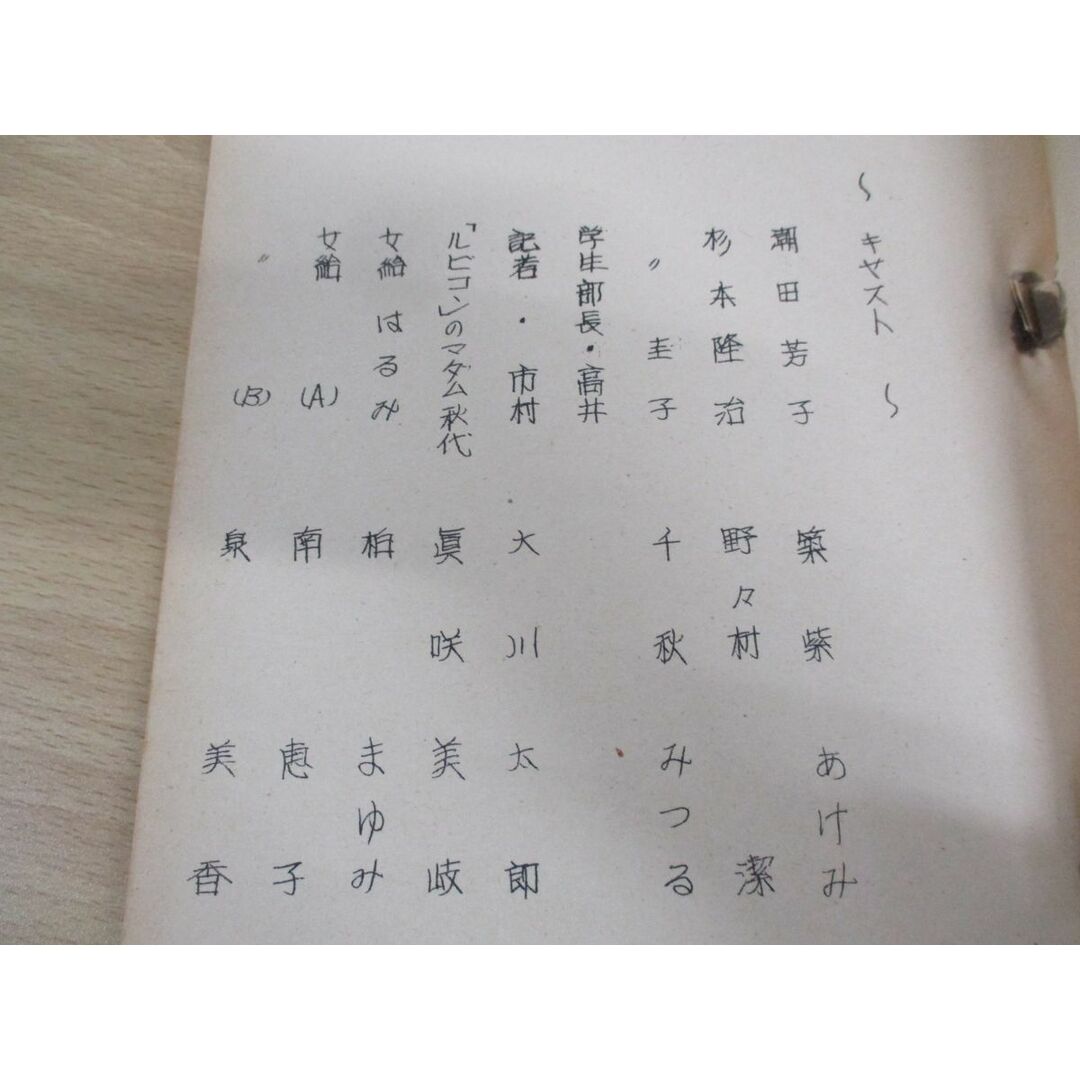 ～ キャスト ～
潮田芳子 築紫あけみ
杉本隆治 野々村潔
〃 圭子 千秋みつる
学生部長・高井
記者・市村 大川太郎
「ルビコン」のマダム秋代 眞咲美岐
女給 はるみ 柏まゆみ
女給 (A) 南恵子
〃 (B) 泉美香